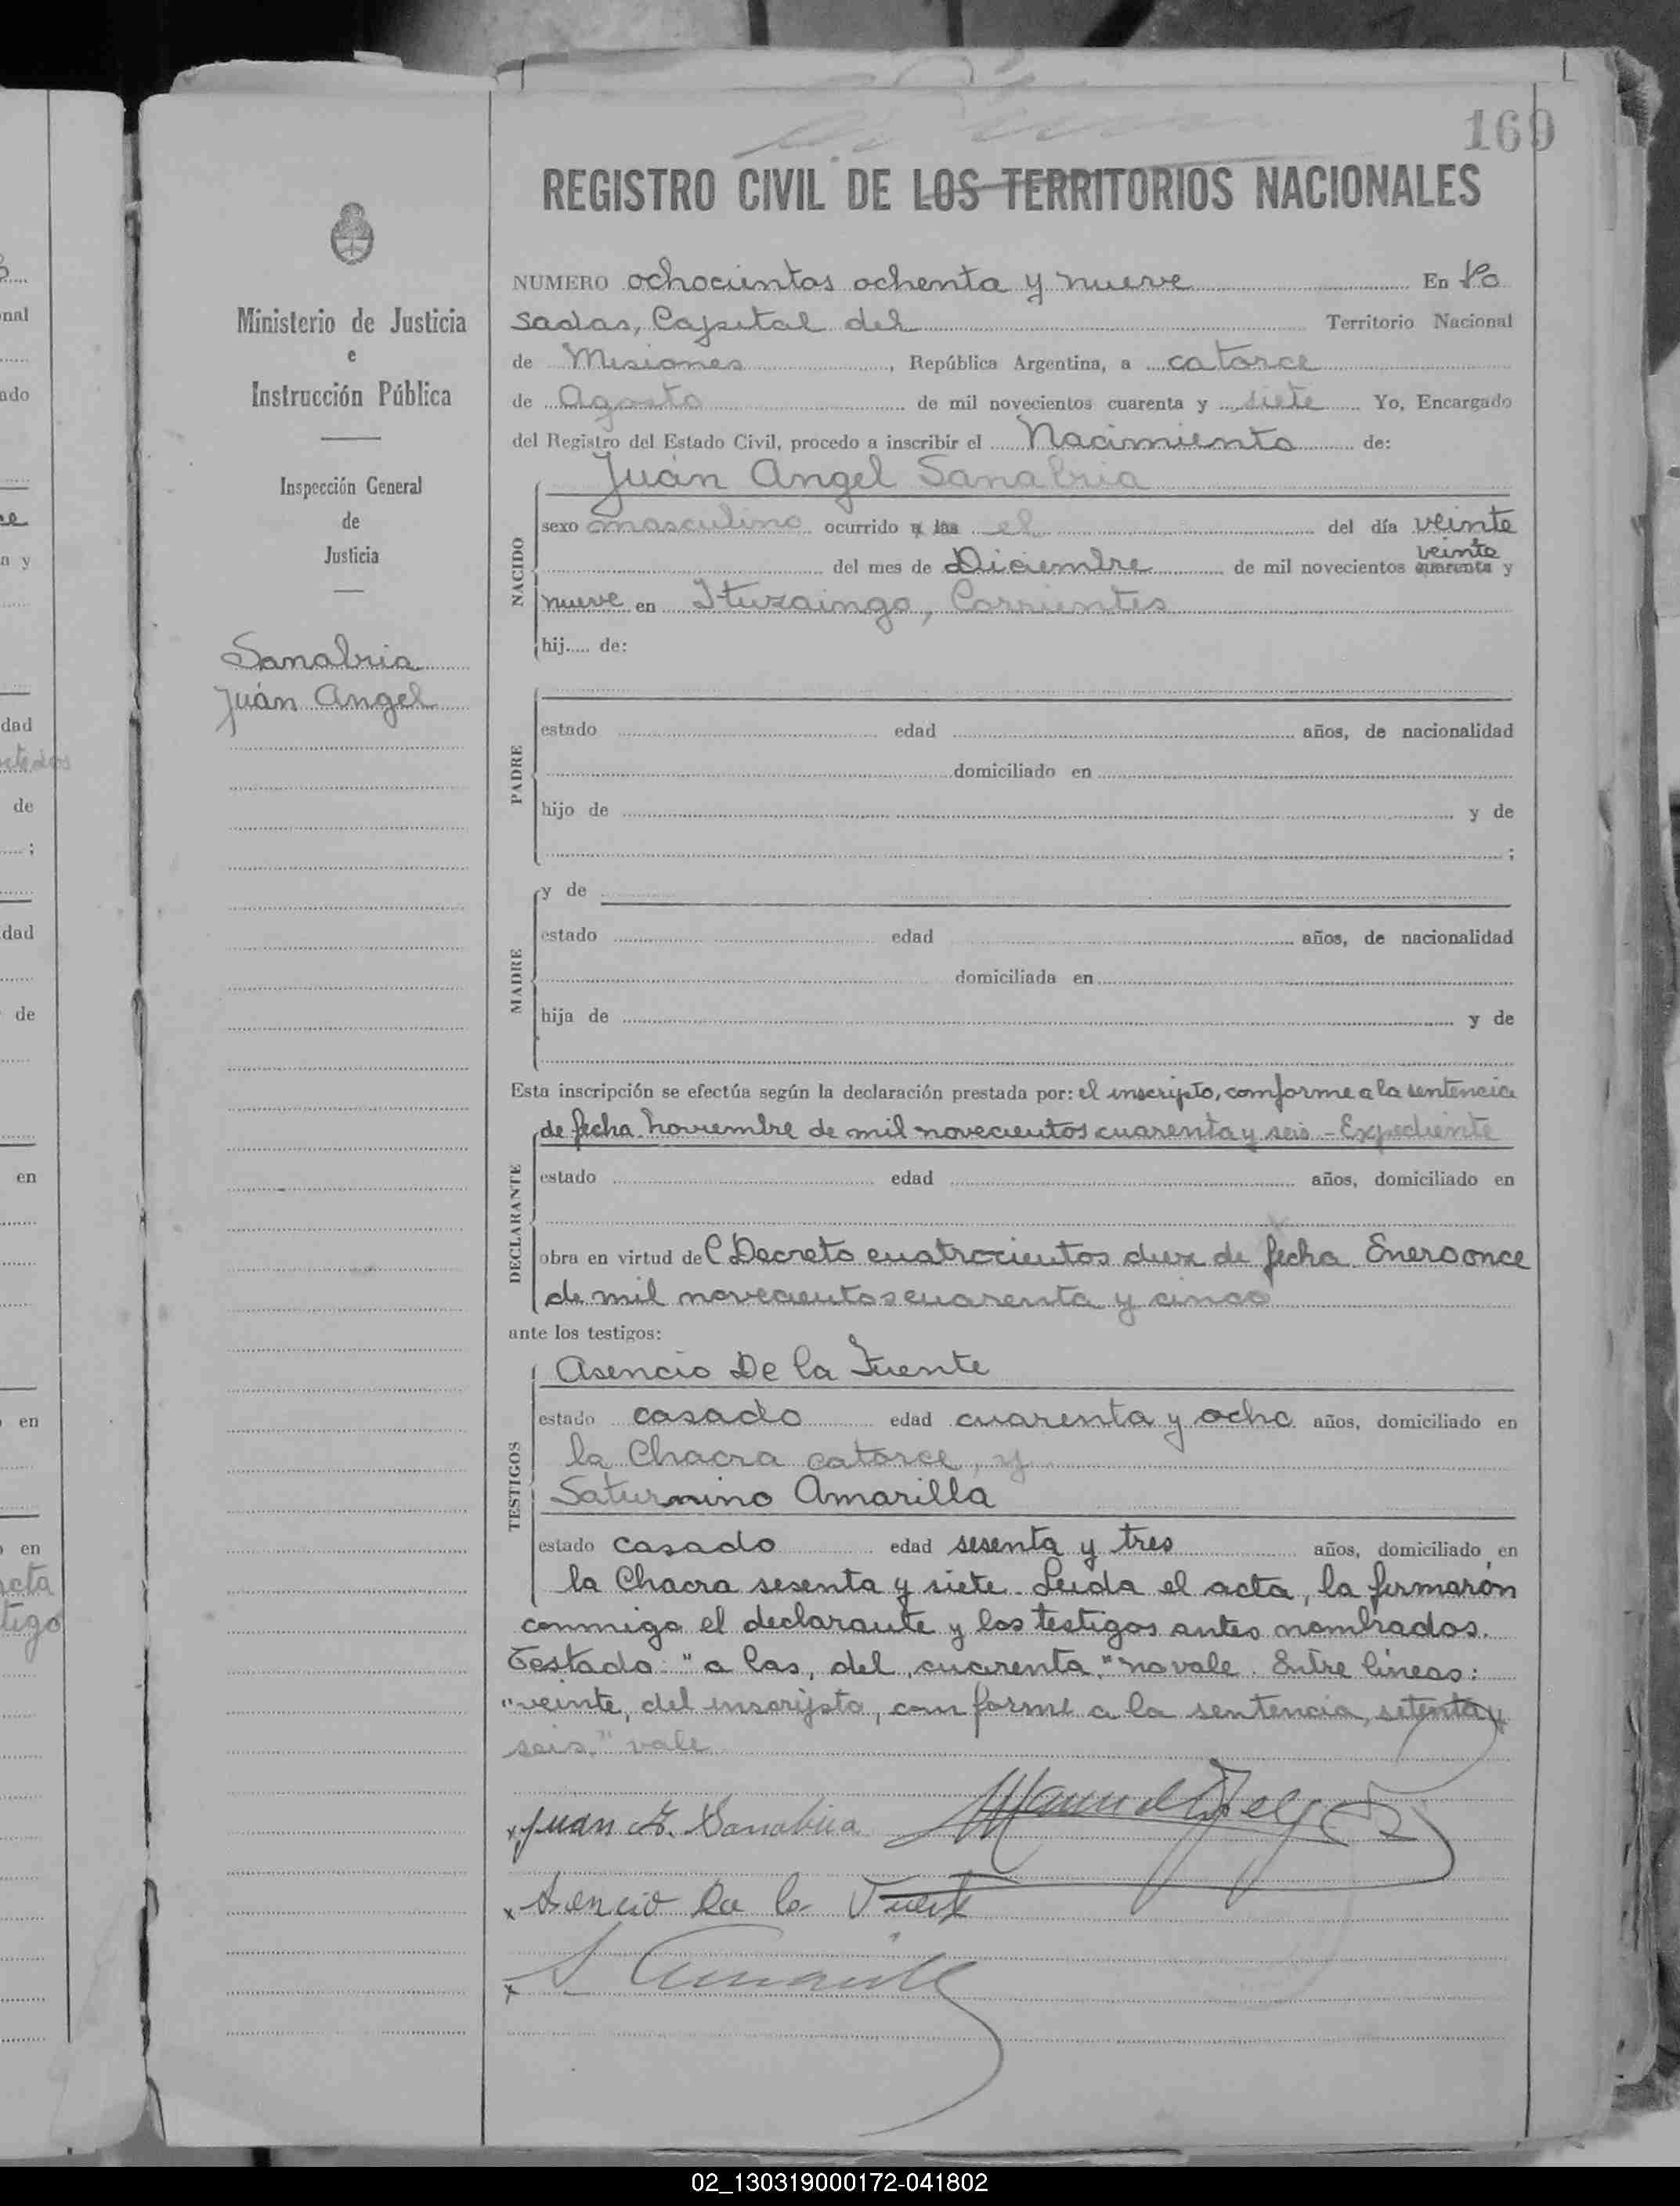 169
REGISTRO CIVIL DE LOS TERRITORIOS NACIONALES
Ministerio de Justicia
e
Instrucción Pública
Inspección General
de
Justicia
Sanabria
Juán Angel
NUMERO ochocientos ochenta y nueve En Po
sadas, Capital del Territorio Nacional
de Misiones, República Argentina, a catorce
de Agosto de mil novecientos cuarenta y siete Yo, Encargado
del Registro del Estado Civil, procedo a inscribir el Nacimiento de:
Juán Angel Sanabria
NACIDO
sexo masculino ocurrido a las el del día veinte
veinte
del mes de Diciembre de mil novecientos cuarenta y
nueve en Ituzaingo, Corrientes
hij..... de:
PADRE
estado edad años, de nacionalidad
domiciliado en
hijo de y de
;
MADRE
y de
estado edad años, de nacionalidad
domiciliada en
hija de y de
Esta inscripción se efectúa según la declaración prestada por: el inscripto, conforme a la sentencia
de fecha noviembre de mil novecientos cuarenta y seis - Expediente
DECLARANTE
estado edad años, domiciliado en
obra en virtud del Decreto cuatrocientos diez de fecha Enero once
de mil novecientos cuarenta y cinco
ante los testigos:
TESTIGOS
Asencio De la Fuente
estado casado edad cuarenta y ocho años, domiciliado en
la Chacra catorce, y
Saturnino Amarilla
estado casado edad sesenta y tres años, domiciliado en
la Chacra sesenta y siete. Leida el acta, la firmarón
conmigo el declarante y los testigos antes nombrados.
Testado: "a las, del, cuarenta." no vale. Entre líneas:
"veinte, del inscripto, conforme a la sentencia, setenta y
seis." vale
x Juan A. Sanabria
x Asencio De la Fuente
x S Amarilla
02_130319000172-041802